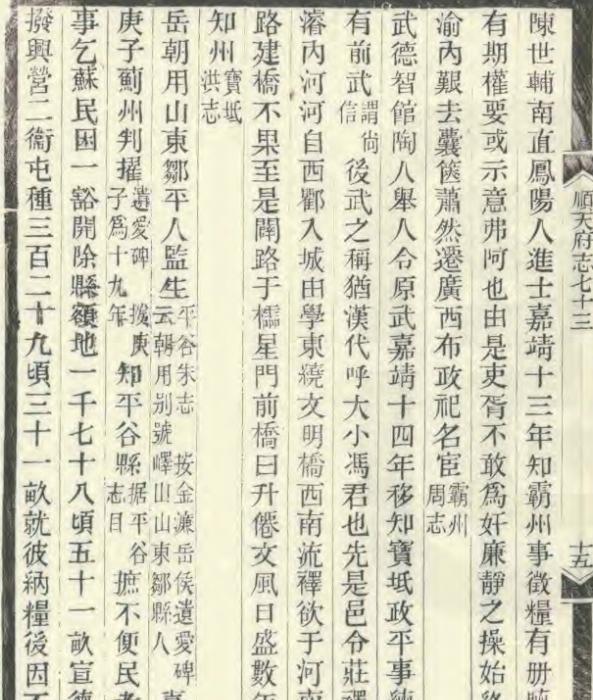 順天府志七十三
十五
陳世輔南直鳳陽人進士嘉靖十三年知霸州事徵糧有册
有期權要或示意弗阿也由是吏胥不敢爲奸廉靜之操始
渝內艱去囊篋蕭然遷廣西布政祀名宦霸州周志
武德智館陶人舉人令原武嘉靖十四年移知寶坻政平事
有前武謂尚信後武之稱猶漢代呼大小馮君也先是邑令莊
濬內河河自西鄽入城由學東繞文明橋西南流襗欲于河
路建橋不果至是闢路于欞星門前橋曰升僊文風日盛數
知州寶坻洪志
岳朝用山東鄒平人監生平谷朱志云朝用别號嶧山山東鄒縣人按金濂岳侯遺愛碑
庚子薊州判擢遺愛碑子爲十九年撥庚知平谷縣据平谷志目摭不便民
事乞蘇民困一豁開除縣額地一千七十八頃五十一畝宣德
撥興營二衞屯種三百二十九頃三十一畝就彼納糧後因